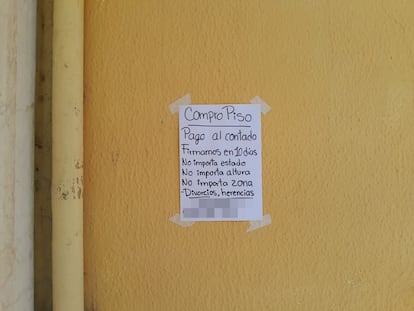 Compro Piso
Pago al contado
Firmamos en 10 días
No importa estado
No importa altura
No importa zona
-Divorcios, herencias